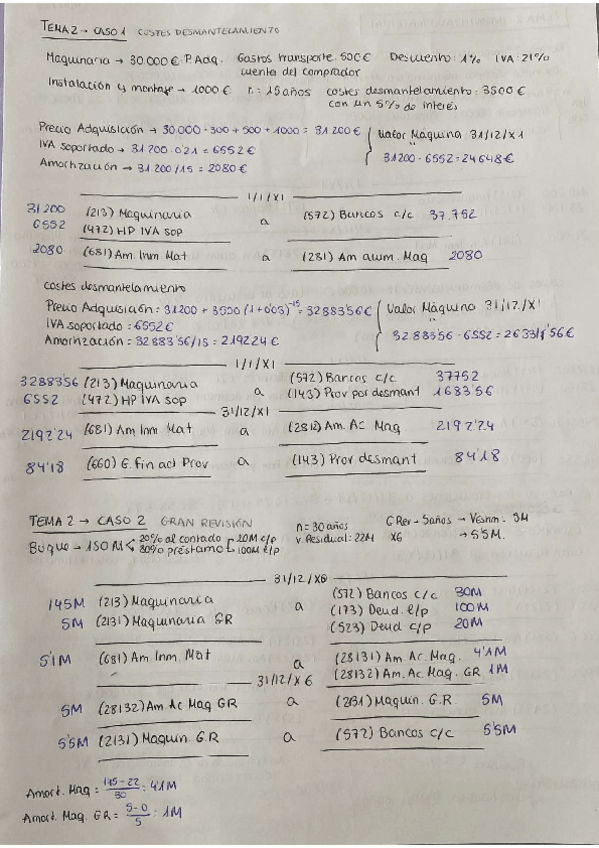 TEMA 2 → CASO 1 COSTES DESMANTELAMIENTO
Maquinaria → 30.000 € P. Adq. Gastos transporte 500 € Descuento: 1% IVA: 21%
cuenta del comprador
Instalación y montaje → 1000 € n: 15 años costes desmantelamiento: 3500 €
con un 5% de interés
Precio Adquisición → 30.000 - 300 + 500 + 1000 = 31200 € Valor Máquina 31/12/X1
IVA soportado → 31200 · 0'21 = 6552 € 31200 - 6552 = 24648 €
Amortización → 31200/15 = 2080 €
1/1/X1
31200 (213) Maquinaria a (572) Bancos c/c 37.752
6552 (472) HP IVA sop
2080 (681) Am. Inm Mat a (281) Am acum. Maq 2080
costes desmantelamiento
Precio Adquisición: 31200 + 3500 (1+0'05)^-15 = 32883'56 € Valor Máquina 31/12/X1
IVA soportado = 6552 € 32883'56 - 6552 = 26331'56 €
Amortización = 32883'56/15 = 2192'24 €
1/1/X1
32883'56 (213) Maquinaria a (572) Bancos c/c 37752
6552 (472) HP IVA sop (143) Prov por desmant 1683'56
31/12/X1
2192'24 (681) Am Inm Mat a (2813) Am. Ac Maq 2192'24
84'18 (660) G. Fin act Prov a (143) Prov desmant 84'18
TEMA 2 → CASO 2 GRAN REVISIÓN
Buque → 150 M 20% al contado 20M c/p n = 30 años G Rev → 5 años → Vestim. 5M
80% préstamo 100M l/p v. Residual: 22M X6 → 5'5M.
31/12/X0
145M (213) Maquinaria a (572) Bancos c/c 30M
5M (2131) Maquinaria GR (173) Deud. l/p 100M
(523) Deud c/p 20M
5'1M (681) Am. Inm. Mat a (28131) Am. Ac. Maq. 4'1M
(28132) Am. Ac. Maq. GR 1M
31/12/X6
5M (28132) Am. Ac Maq GR a (2131) Maquin. G.R. 5M
5'5M (2131) Maquin. G.R a (572) Bancos c/c 5'5M
Amort. Maq = 145-22/30 : 4'1M
Amort. Maq. GR = 5-0/5 : 1M